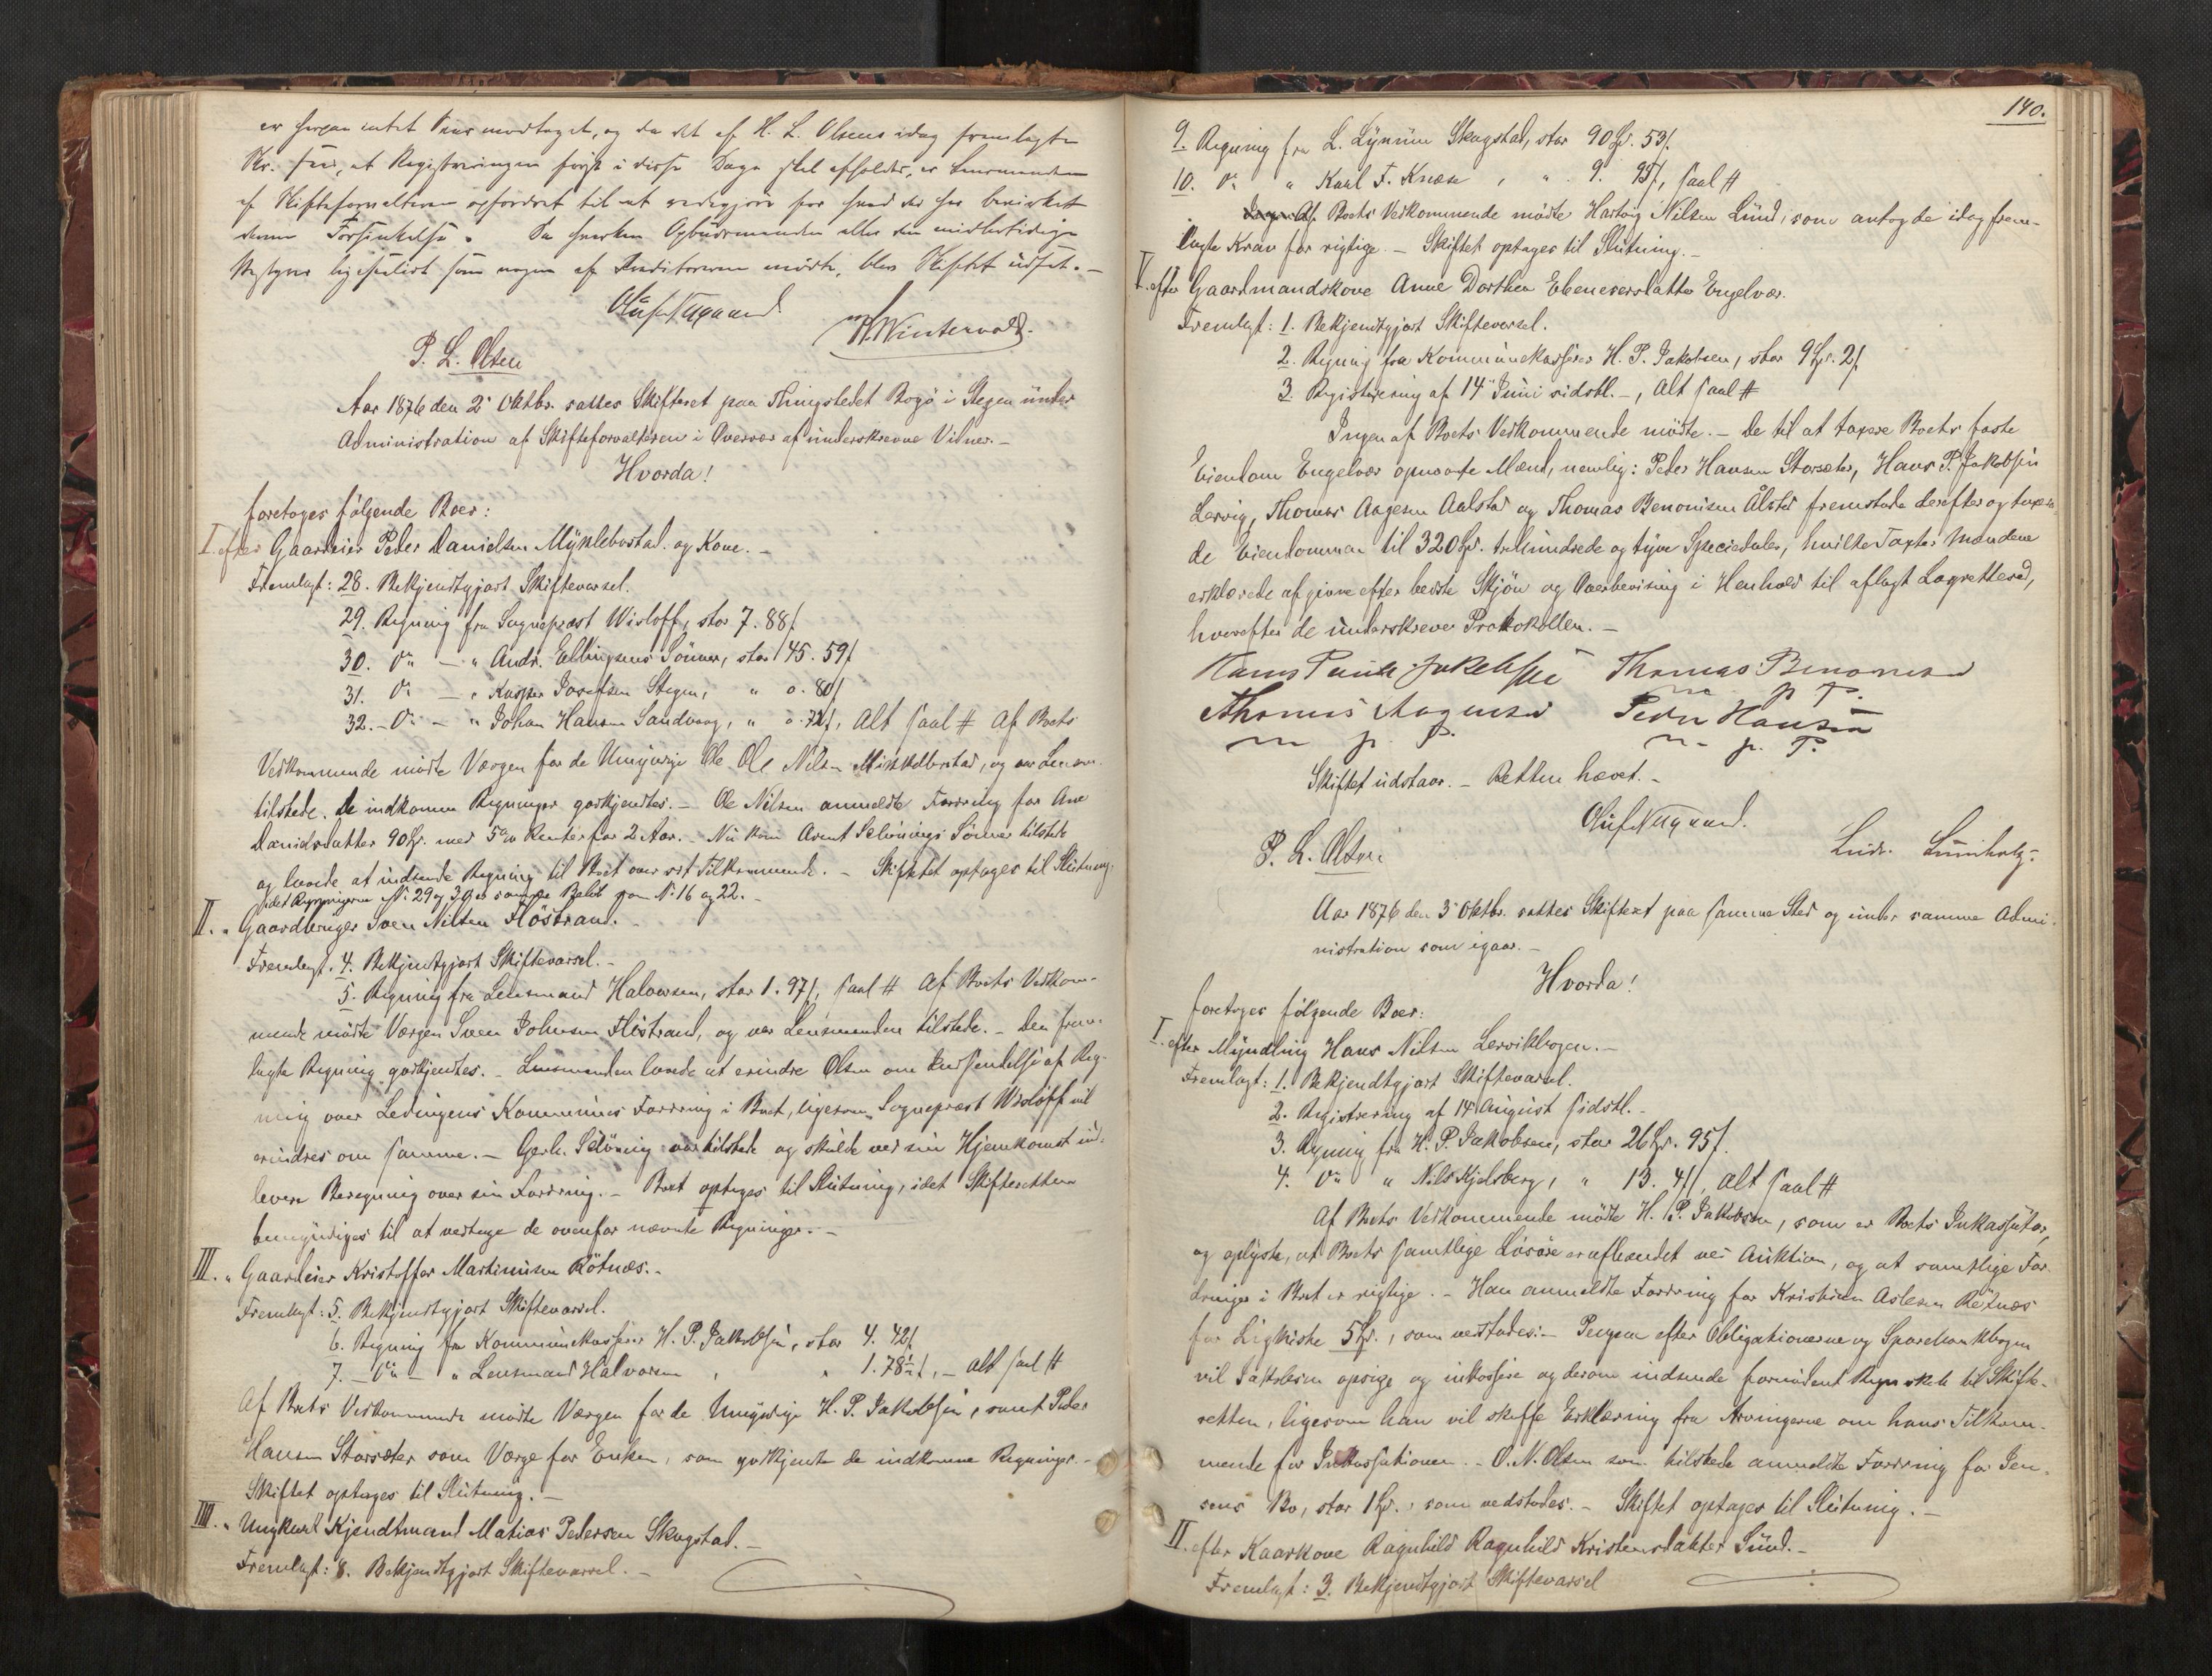 er herpaa intet Svar modtaget, og da det af H. L. Olsens idag fremlagte
Kr. sees, at Registreringen først i disse Dage skal afholdes, er Lensmanden
af Skifteforvalteren opfordret til at redegjøre for hvad der har bevirket
denne Forsinkelse. Da hverken Ombudsmanden eller den midlertidige
Bestyrer ligesaalidt som nogen af Kreditorerne mødte, blev Skiftet udsat. –
Oluf Aagaard
Wintervold.
P. L. Olsen
Aar 1876 den 2' Oktbr. sattes Skifteret paa Thingstedet Bogø i Stegen under
Administration af Skifteforvalteren i Overvær af underskrevne Vidner. –
Hvorda!
foretoges følgende Boer:
I. efter Gaardeier Peder Danielsen Myklebostad og Kone. –
Fremlagt: 28. Bekjendtgjort Skiftevarsel.
29. Regning fra Sognepræst Wisloff, stor 7. 88/
30. Do – " Andr. Ellingsens Sønner, stor 145. 59/
31. Do – " Kasper Josefsen Stegen, " o. 80/
32. – Do – " Johan Hansen Sandvaag, " o. 72/, Alt saal # Af Boets
Vedkommende mødte Værgen for de Umyndige Ole Ole Nilsen Mikkelbostad, og var Lensm.
tilstede. De indkomne Regninger godkjendtes. – Ole Nilsen anmeldte Fordring for Ane
Danielsdatter 90 Spd. med 5% Renter for 2 Aar. – Nu kom Arent Schønings Sønner tilstede
og lovede at indsende Regning til Boet over sit Tilkommende. – Skiftet optages til Slutning,
idet Regningerne No. 29 og 30 er samme Beløb som No. 16 og 22. –
II. " Gaardbruger Sven Nilsen Flöstrand. –
Fremlagt. 4. Bekjendtgjort Skiftevarsel. –
5. Regning fra Lensmand Halvorsen, stor 1. 97/, saal # Af Boets Vedkom-
mende mødte Værgen Sven Johnsen Flöstrand, og var Lensmanden tilstede. – Den frem-
lagte Regning godkjentes. – Lensmanden lovede at erindre Olsen om Indsendelse af Reg-
ning over Ledingens Kommunes Fordring i Boet, ligesom Sognepræst Wisloff vil
erindres om samme. – Gerh. Schöning var tilstede og skulde ved sin Hjemkomst ind-
levere Beregning over sin Fordring. – Boet optages til Slutning, idet Skifteretten
bemyndiges til at vedtage de ovenfor nævnte Regninger. –
III. " Gaardeier Kristoffer Martinusen Rötnæs. –
Fremlagt: 5. Bekjendtgjort Skiftevarsel.
6. Regning fra Kommunekasserer H. P. Jakobsen, stor 4. 42/
7. – Do – " Lensmand Halvorsen , " 1. 78½/, – alt saal #
Af Boets Vedkommende mødte Værgen for de Umyndige H. P. Jakobsen, samt Peder
Hansen Storsæter som Værge for Enken, som godkjendte de indkomne Regninger. –
Skiftet optages til Slutning. –
IIII. " Ungkarl Kjendtmand Matias Pedersen Skogstad. –
Fremlagt: 8. Bekjendtgjort Skiftevarsel. –
140.
9. Regning fra L. Lynum Skogstad, stor 90 Spd. 53/.
10. Do " Karl F. Knæse , " 9. 95/, saal #
Af Boets Vedkommende mödte Hartvig Nilsen Lund, som antog de idag frem-
lagte Krav for rigtige. – Skiftet optages til Slutning. –
V. efter Gaardmandskone Anne Dorthea Ebenezersdatter Engelvær.
Fremlagt: 1. Bekjendtgjort Skiftevarsel.
2. Regning fra Kommunekasserer H. P. Jakobsen, stor 9 Spd. 2/
3. Registrering af 14' Juni sidstl. –, Alt saal #
Ingen af Boets Vedkommende mödte. – De til at taxere Boets faste
Eiendom Engelvær opnævnte Mænd, nemlig: Peder Hansen Storsæter, Hans P. Jakobsen
Lervig, Thomas Aagesen Aalstad og Thomas Benonisen Ålstad fremstode derefter og taxere-
de Eiendommen til 320 Spd. trehundrede og tyve Speciedaler, hvilke Taxter Mændene
erklærede afgivne efter bedste Skjön og Overbevisning i Henhold til aflagt Lagrettesed,
hvorefter de underskrev Protokollen. –
Hans Peter Jakobsen Thomas Benonisen
m p P.
Thomas Aagesen Peder Hansen
m p. P. m. p. P.
Skiftet udstaar. – Retten hævet. –
Oluf Aagaard.
P. L. Olsen Ludv. Lumholtz.
Aar 1876 den 3' Oktbr. sattes Skifteret paa samme Sted og under samme Admi-
nistration som igaar. –
Hvorda!
foretoges følgende Boer:
I. efter Myndling Hans Nilsen Lervikbogen. –
Fremlagt: 1. Bekjendtgjort Skiftevarsel.
2. Registrering af 14' August sidstl. –
3. Regning fra H. P. Jakobsen, stor 26 Spd. 95/.
4. Do " Nils Kjelsberg, " 13. 4/, alt saal #
Af Boets Vedkommende mødte H. P. Jakobsen, som er Boets Inkassator,
og oplyste, at Boets samtlige Lösöre er afhændet ved Auktion, og at samtlige For-
dringer i Boet er rigtige. – Han anmeldte Fordring for Kristian Aslesen Rötnæs
for Ligkiste 5 Spd., som vedtoges. – Pengene efter Obligationerne og Sparebankbogen
vil Jakobsen opsige og inkassere og derom indsende fornødent Regnskab til Skifte-
retten, ligesom han vil skaffe Erklæring fra Arvingerne om hans Tilkom-
mende for Inkassationen. – O. N. Olsen som tilstede anmeldte Fordring for Jen-
sens Bo, stor 1 Spd., som vedstodes. – Skiftet optages til Slutning. –
II. efter Kaarkone Ragnhild Ragnhild Kristensdatter Sund. –
Fremlagt: 3. Bekjendtgjort Skiftevarsel